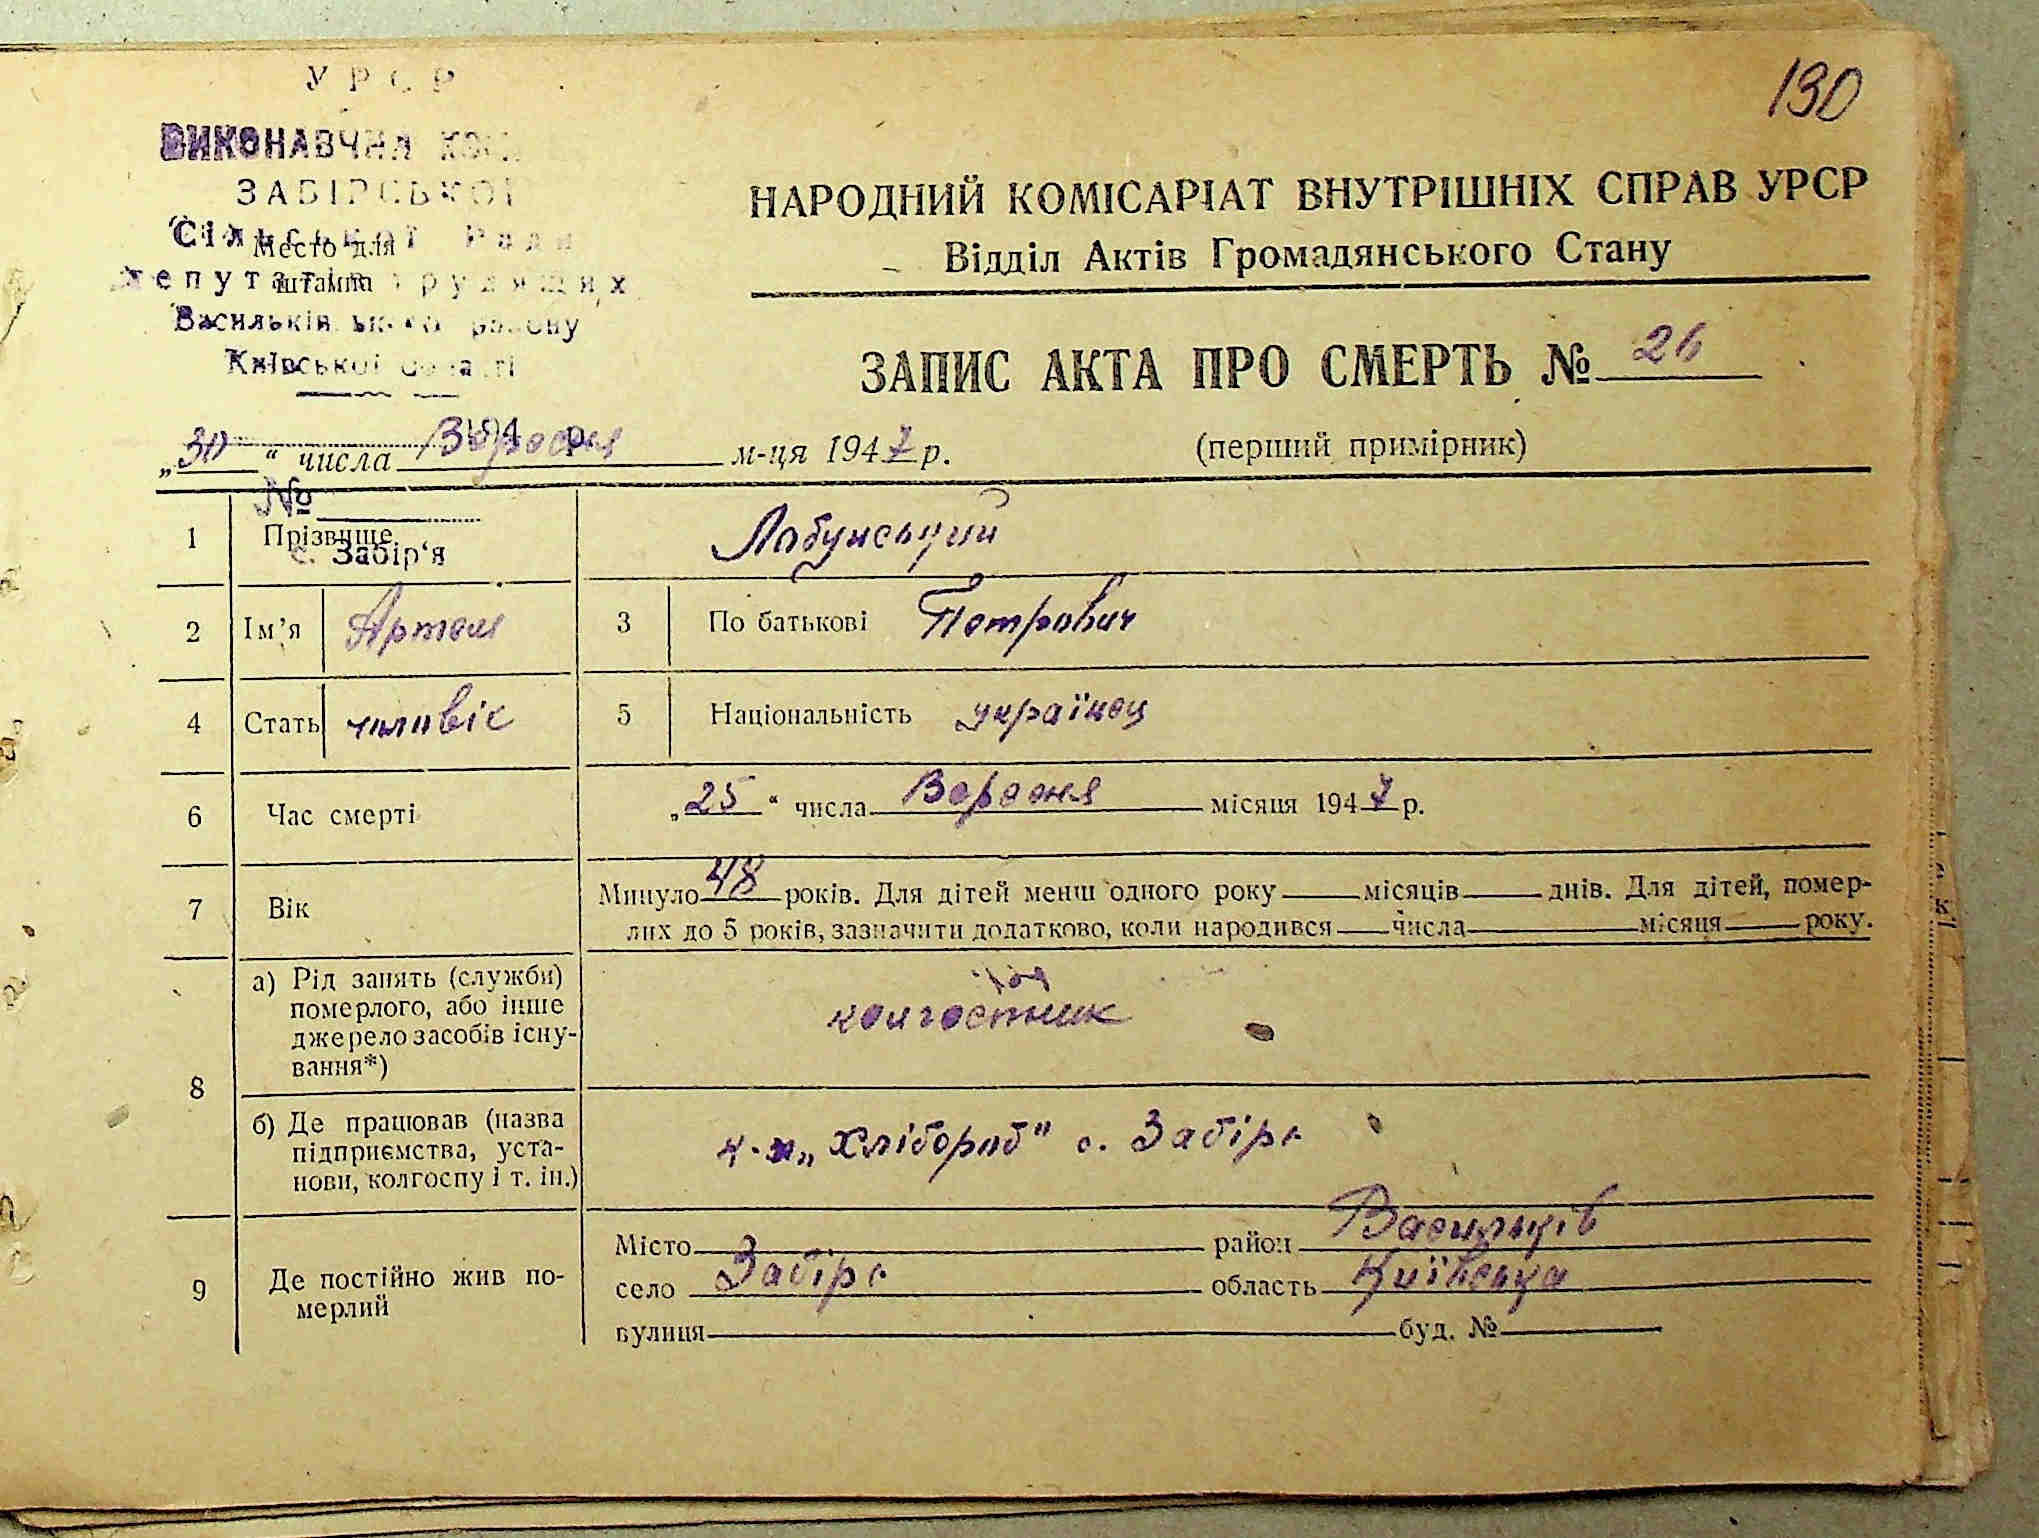 130
УРСР
ВИКОНАВЧИЙ
ЗАБІРСЬКОЇ
Сільської Ради
Место для
депутатів трудящих
штампа
Васильківського району
Київської області
194 р.
№
с. Забір'я
НАРОДНИЙ КОМІСАРІАТ ВНУТРІШНІХ СПРАВ УРСР
Відділ Актів Громадянського Стану
ЗАПИС АКТА ПРО СМЕРТЬ № 26
„30“ числа Вересня м-ця 1947 р. (перший примірник)
1 Прізвище Лабунський
2 Ім’я Артем 3 По батькові Петрович
4 Стать чоловік 5 Національність українец
6 Час смерті „25“ числа Вересня місяця 1947 р.
7 Вік Минуло 48 років. Для дітей менш одного року місяців днів. Для дітей, помер-
лих до 5 років, зазначити додатково, коли народився числа місяця року.
8 а) Рід занять (служби)
померлого, або інше
джерело засобів існу-
вання*)
колгостник
б) Де працював (назва
підприємства, уста-
нови, колгоспу і т. ін.)
„Хлібороб" с. Забірє
9 Де постійно жив по-
мерлий
Місто район Васильків
село Забірє область Київська
вулиця буд. №